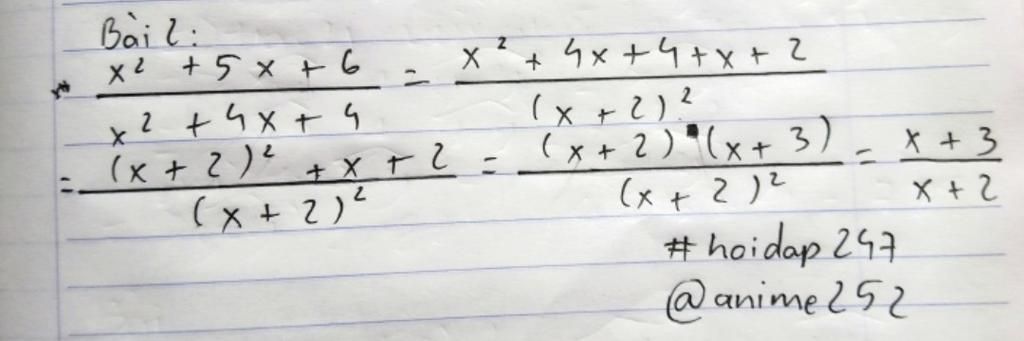 Bài 2:
* x² + 5x + 6 / x² + 4x + 4 = x² + 4x + 4 + x + 2 / (x + 2)²
= (x + 2)² + x + 2 / (x + 2)² = (x + 2) (x + 3) / (x + 2)² = x + 3 / x + 2
#hoidap247
@anime252